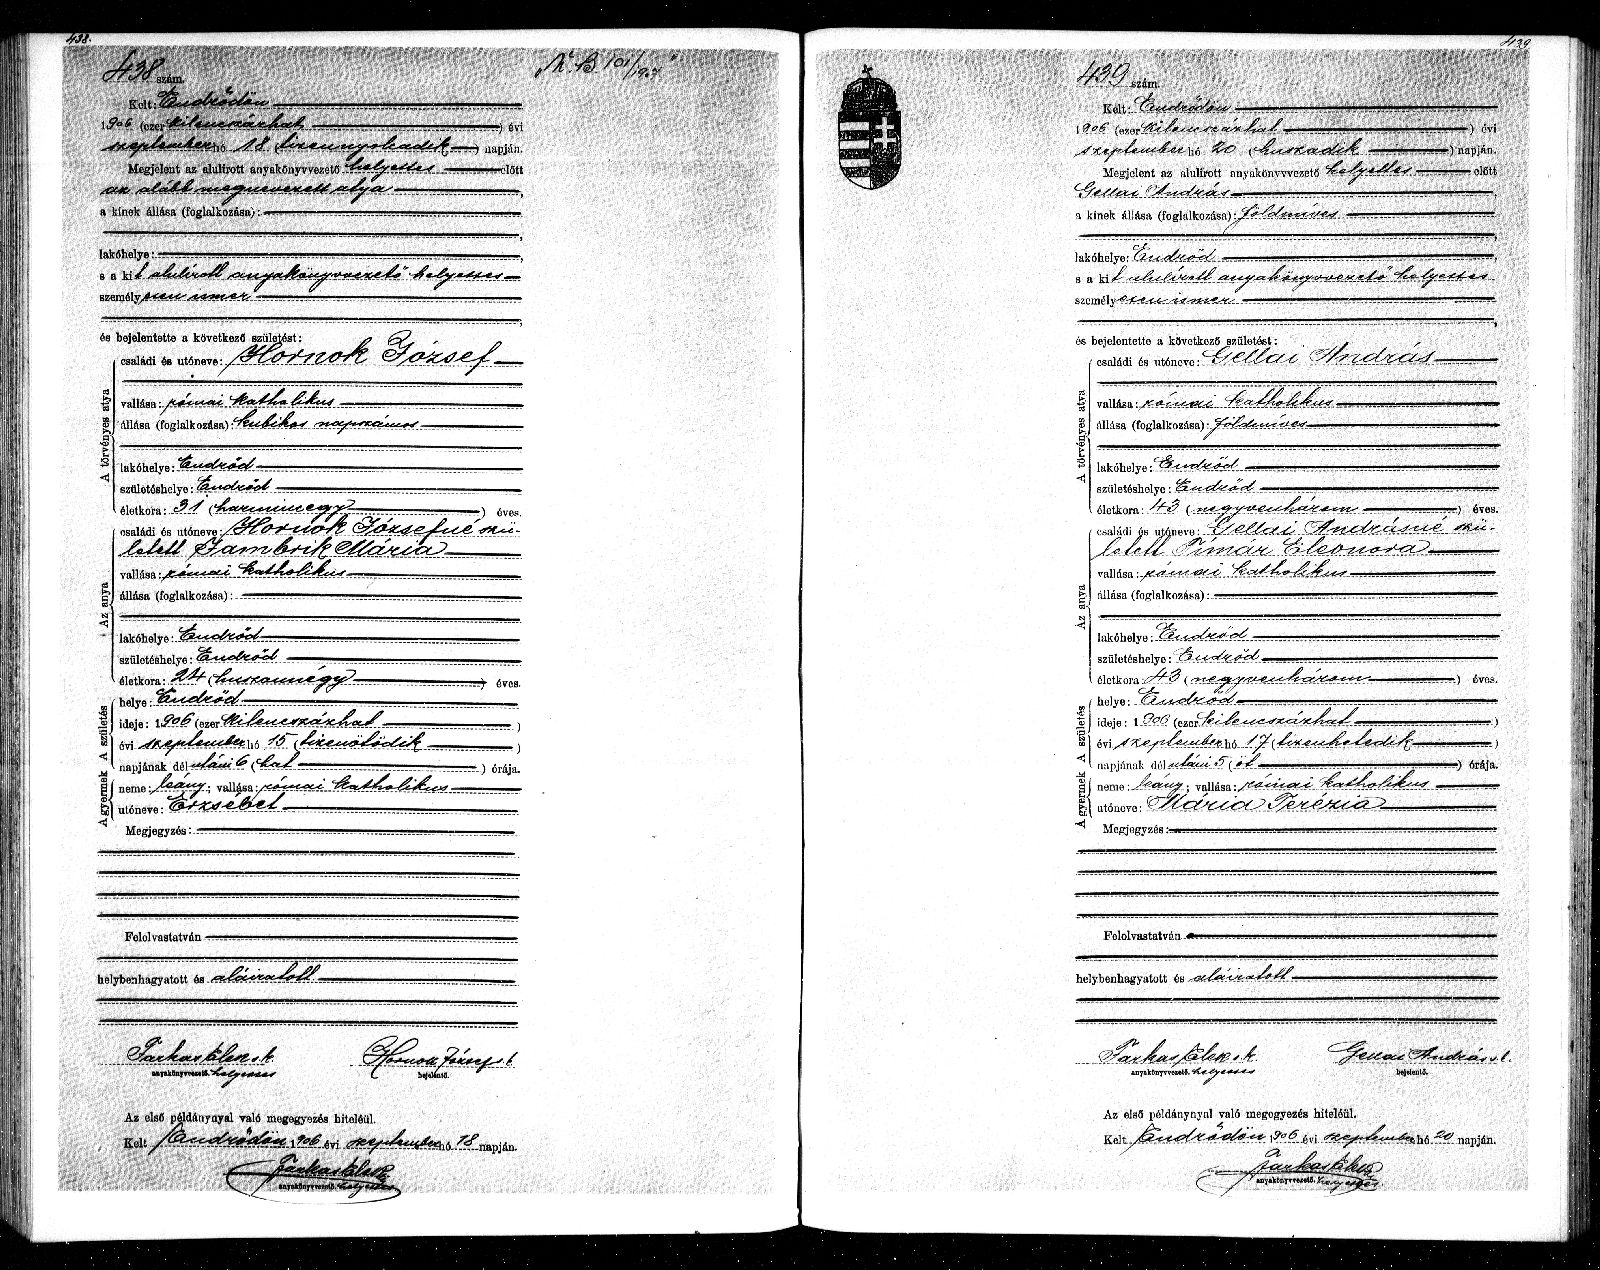 438.
438 szám.
Kelt: Endrődön
1906 (ezer kilenczszázhat) évi
szeptember hó 18 (tizennyolcadik) napján.
Megjelent az alulirott anyakönyvvezető helyettes előtt
az alább megnevezett atya,
a kinek állása (foglalkozása):
lakóhelye:
s a kit alulirott anyakönyvvezető helyettes
személyesen ismer
és bejelentette a következő születést:
A törvényes atya
családi és utóneve: Hornok József
vallása: római katholikus
állása (foglalkozása): kubikos napszámos
lakóhelye: Endrőd
születéshelye: Endrőd
életkora: 31 (harminegy) éves.
Az anya
családi és utóneve: Hornok Józsefné szü-
letett Jambrik Mária
vallása: római katholikus
állása (foglalkozása):
lakóhelye: Endrőd
születéshelye: Endrőd
életkora: 24 (huszannégy) éves.
A születés
helye: Endrőd
ideje: 1906 (ezer kilenczszázhat)
évi szeptember hó 15 (tizenötödik)
napjának dél utáni 6 (hat) órája.
A gyermek
neme: leány; vallása: római katholikus
utóneve: Erzsébet
Megjegyzés:
Felolvastatván
helybenhagyatott és aláiratott
Farkas Elek s. k. Hornok József s. k.
anyakönyvvezető. helyettes bejelentő.
Az első példánynyal való megegyezés hiteléül.
Kelt Endrődön 1906 évi szeptember hó 18 napján.
Farkas Elek
anyakönyvvezető. helyettes
439
439 szám.
Kelt: Endrődön
1906 (ezer kilenczszázhat) évi
szeptember hó 20 (huszadik) napján.
Megjelent az alulirott anyakönyvvezető helyettes előtt
Gellai András
a kinek állása (foglalkozása): földmíves
lakóhelye: Endrőd
s a kit alulirott anyakönyvvezető helyettes
személyesen ismer
és bejelentette a következő születést:
A törvényes atya
családi és utóneve: Gellai András
vallása: római katholikus
állása (foglalkozása): földmíves
lakóhelye: Endrőd
születéshelye: Endrőd
életkora: 43 (negyvenhárom) éves.
Az anya
családi és utóneve: Gellai Andrásné szü-
letett Tímár Eleonora
vallása: római katholikus
állása (foglalkozása):
lakóhelye: Endrőd
születéshelye: Endrőd
életkora 43 (negyvenhárom) éves.
A születés
helye: Endrőd
ideje: 1906 (ezer kilenczszázhat)
évi szeptember hó 17 (tizenhetedik)
napjának dél utáni 5 (öt) órája.
A gyermek
neme: leány; vallása: római katholikus
utóneve: Mária Terézia
Megjegyzés:
Felolvastatván
helybenhagyatott és aláiratott
Farkas Elek s. k. Gellai András s. k.
anyakönyvvezető. helyettes bejelentő.
Az első példánynyal való megegyezés hiteléül.
Kelt Endrődön 1906 évi szeptember hó 20 napján.
Farkas Elek
anyakönyvvezető. helyettes